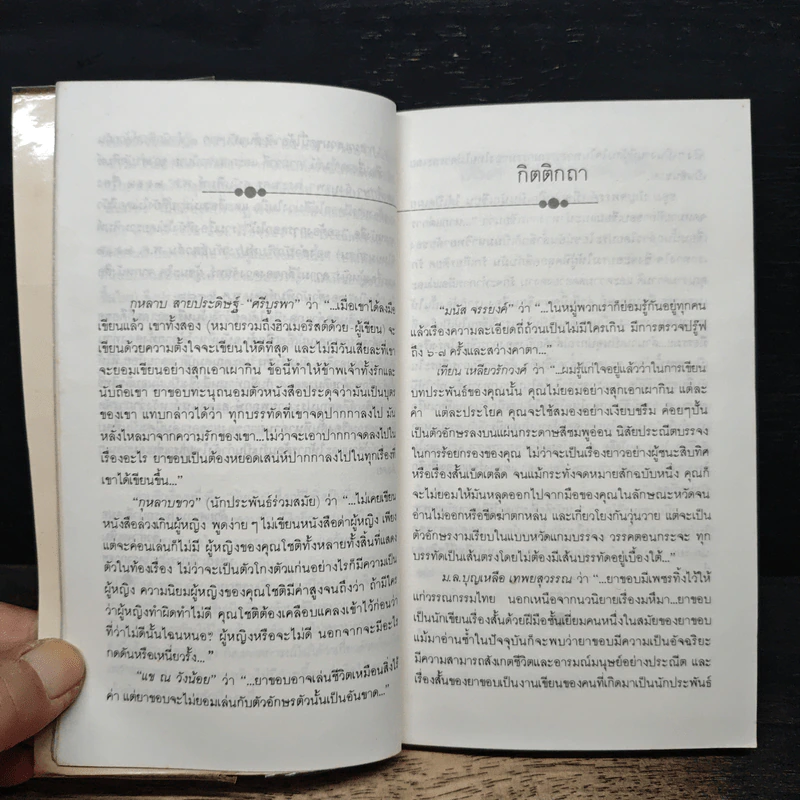 กุหลาบ สายประดิษฐ์-"ศรีบูรพา" ว่า "...เมื่อเขาได้ลงมือ
เขียนแล้ว เขาทั้งสอง (หมายรวมถึงฮิวเมอริสต์ด้วย-ผู้เขียน) จะ
เขียนด้วยความตั้งใจจะเขียนให้ดีที่สุด และไม่มีวันเสียละที่เขา
จะยอมเขียนอย่างสุกเอาเผากิน ข้อนี้ทำให้ข้าพเจ้าทั้งรักและ
นับถือเขา ยาขอบทะนุถนอมตัวหนังสือประดุจว่ามันเป็นบุตร
ของเขา แทบกล่าวได้ว่า ทุกบรรทัดที่เขาจดปากกาลงไป มัน
หลั่งไหลมาจากความรักของเขา...ไม่ว่าจะเอาปากกาจดลงไปใน
เรื่องอะไร ยาขอบเป็นต้องหยอดเสน่ห์ปากกาลงไปในทุกเรื่องที่
เขาได้เขียนขึ้น..."
"กุหลาบขาว" (นักประพันธ์ร่วมสมัย) ว่า "...ไม่เคยเขียน
หนังสือล่วงเกินผู้หญิง พูดง่าย ๆ ไม่เขียนหนังสือด่าผู้หญิง เพียง
แต่จะค่อนเล่นก็ไม่มี ผู้หญิงของคุณโชติทั้งหลายทั้งสิ้นที่แสดง
ตัวในท้องเรื่อง ไม่ว่าจะเป็นตัวโกงตัวแก่นอย่างไรก็มีความเป็น
ผู้หญิง ความนิยมผู้หญิงของคุณโชติมีค่าสูงจนถึงว่า ถ้ามีใคร
ว่าผู้หญิงทำผิดทำไม่ดี คุณโชติต้องเคลือบแคลงเข้าไว้ก่อนว่า
ที่ว่าไม่ดีนั้นไฉนหนอ? ผู้หญิงหรือจะไม่ดี นอกจากจะมีอะไร
กดดันหรือเหนี่ยวรั้ง..."
"แข ณ วังน้อย" ว่า "...ยาขอบอาจเล่นชีวิตเหมือนสิ่งไร้
ค่า แต่ยาขอบจะไม่ยอมเล่นกับตัวอักษรตัวนั้นเป็นอันขาด..."
กิตติกถา
"มนัส จรรยงค์" ว่า "...ในหมู่พวกเราก็ยอมรู้กันอยู่ทุกคน
แล้วเรื่องความละเอียดถี่ถ้วนเป็นไม่มีใครเกิน มีการตรวจปรู๊ฟ
ถึง ๖-๗ ครั้งและสว่างคาตา..."
เทียน เหลียวรักวงศ์ ว่า "...ผมรู้แก่ใจอยู่แล้วว่าในการเขียน
บทประพันธ์ของคุณนั้น คุณไม่ยอมอย่างสุกเอาเผากิน แต่ละ
คำ แต่ละประโยค คุณจะใช้สมองอย่างเงียบขรึม ค่อยๆปั้น
เป็นตัวอักษรลงบนแผ่นกระดาษสีชมพูอ่อน นิสัยประณีตบรรจง
ในการร้อยกรองของคุณ ไม่ว่าจะเป็นเรื่องยาวอย่างผู้ชนะสิบทิศ
หรือเรื่องสั้นเบ็ดเตล็ด จนแม้กระทั่งจดหมายสักฉบับหนึ่ง คุณก็
จะไม่ยอมให้มันหลุดออกไปจากมือของคุณในลักษณะหวัดจน
อ่านไม่ออกหรือขีดฆาตกหล่น และเกี่ยวโยงกันวุ่นวาย แต่จะเป็น
ตัวอักษรงามเรียบในแบบหวัดแกมบรรจง วรรคตอนกระจะ ทุก
บรรทัดเป็นเส้นตรงโดยไม่ต้องมีเส้นบรรทัดอยู่เบื้องใต้..."
ม.ล.บุญเหลือ เทพยสุวรรณ ว่า "...ยาขอบมีเพชรทิ้งไว้ให้
แก่วรรณกรรมไทย นอกเหนือจากนวนิยายเรื่องมหึมา...ยาขอบ
เป็นนักเขียนเรื่องสั้นด้วยฝีมือชั้นเยี่ยมคนหนึ่งในสมัยของยาขอบ
แม้มาอ่านซ้ำในปัจจุบันก็จะพบว่ายาขอบมีความเป็นอัจฉริยะ
มีความสามารถสังเกตชีวิตและอารมณ์มนุษย์อย่างประณีต และ
เรื่องสั้นของยาขอบเป็นงานเขียนของคนที่เกิดมาเป็นนักประพันธ์